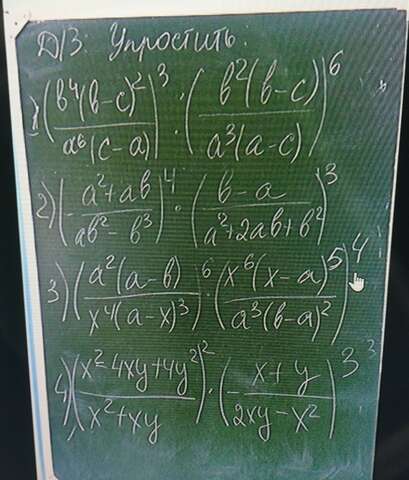 Д/З: Упростить.
1) (b⁴(b-c)²/a⁶(c-a))³ · (b²(b-c)/a³(a-c))⁶
2) (-a²+ab/ab²-b³)⁴ · (b-a/a²+2ab+b²)³
3) (a²(a-b)/x⁴(a-x)³)⁶ · (x⁶(x-a)⁵/a³(b-a)²)⁴
4) (x²-4xy+4y²/x²+xy)² · (-x+y/2xy-x²)³ ³